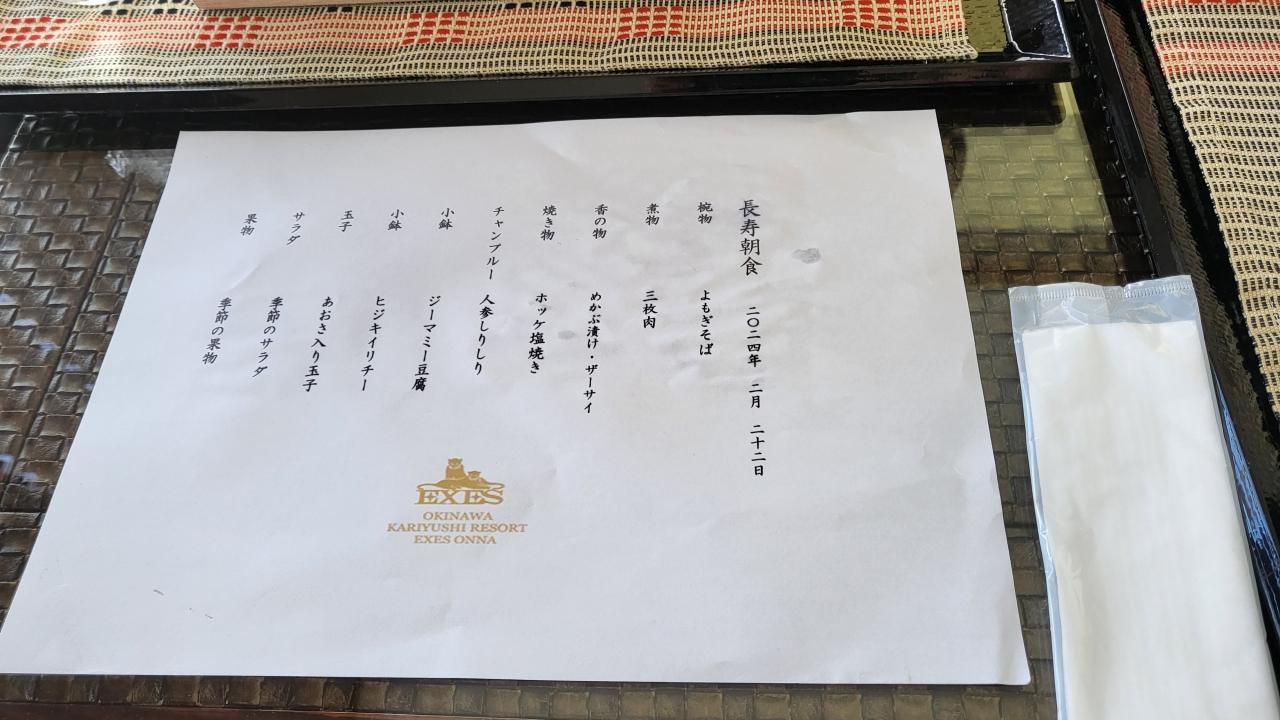 長寿朝食 二〇二四年 二月 二十二日
椀物 よもぎそば
煮物 三枚肉
香の物 めかぶ漬け・ザーサイ
焼き物 ホッケ塩焼き
チャンプルー 人参しりしり
小鉢 ジーマミー豆腐
小鉢 ヒジキイリチー
玉子 あおさ入り玉子
サラダ 季節のサラダ
果物 季節の果物
EXES
OKINAWA
KARIYUSHI RESORT
EXES ONNA